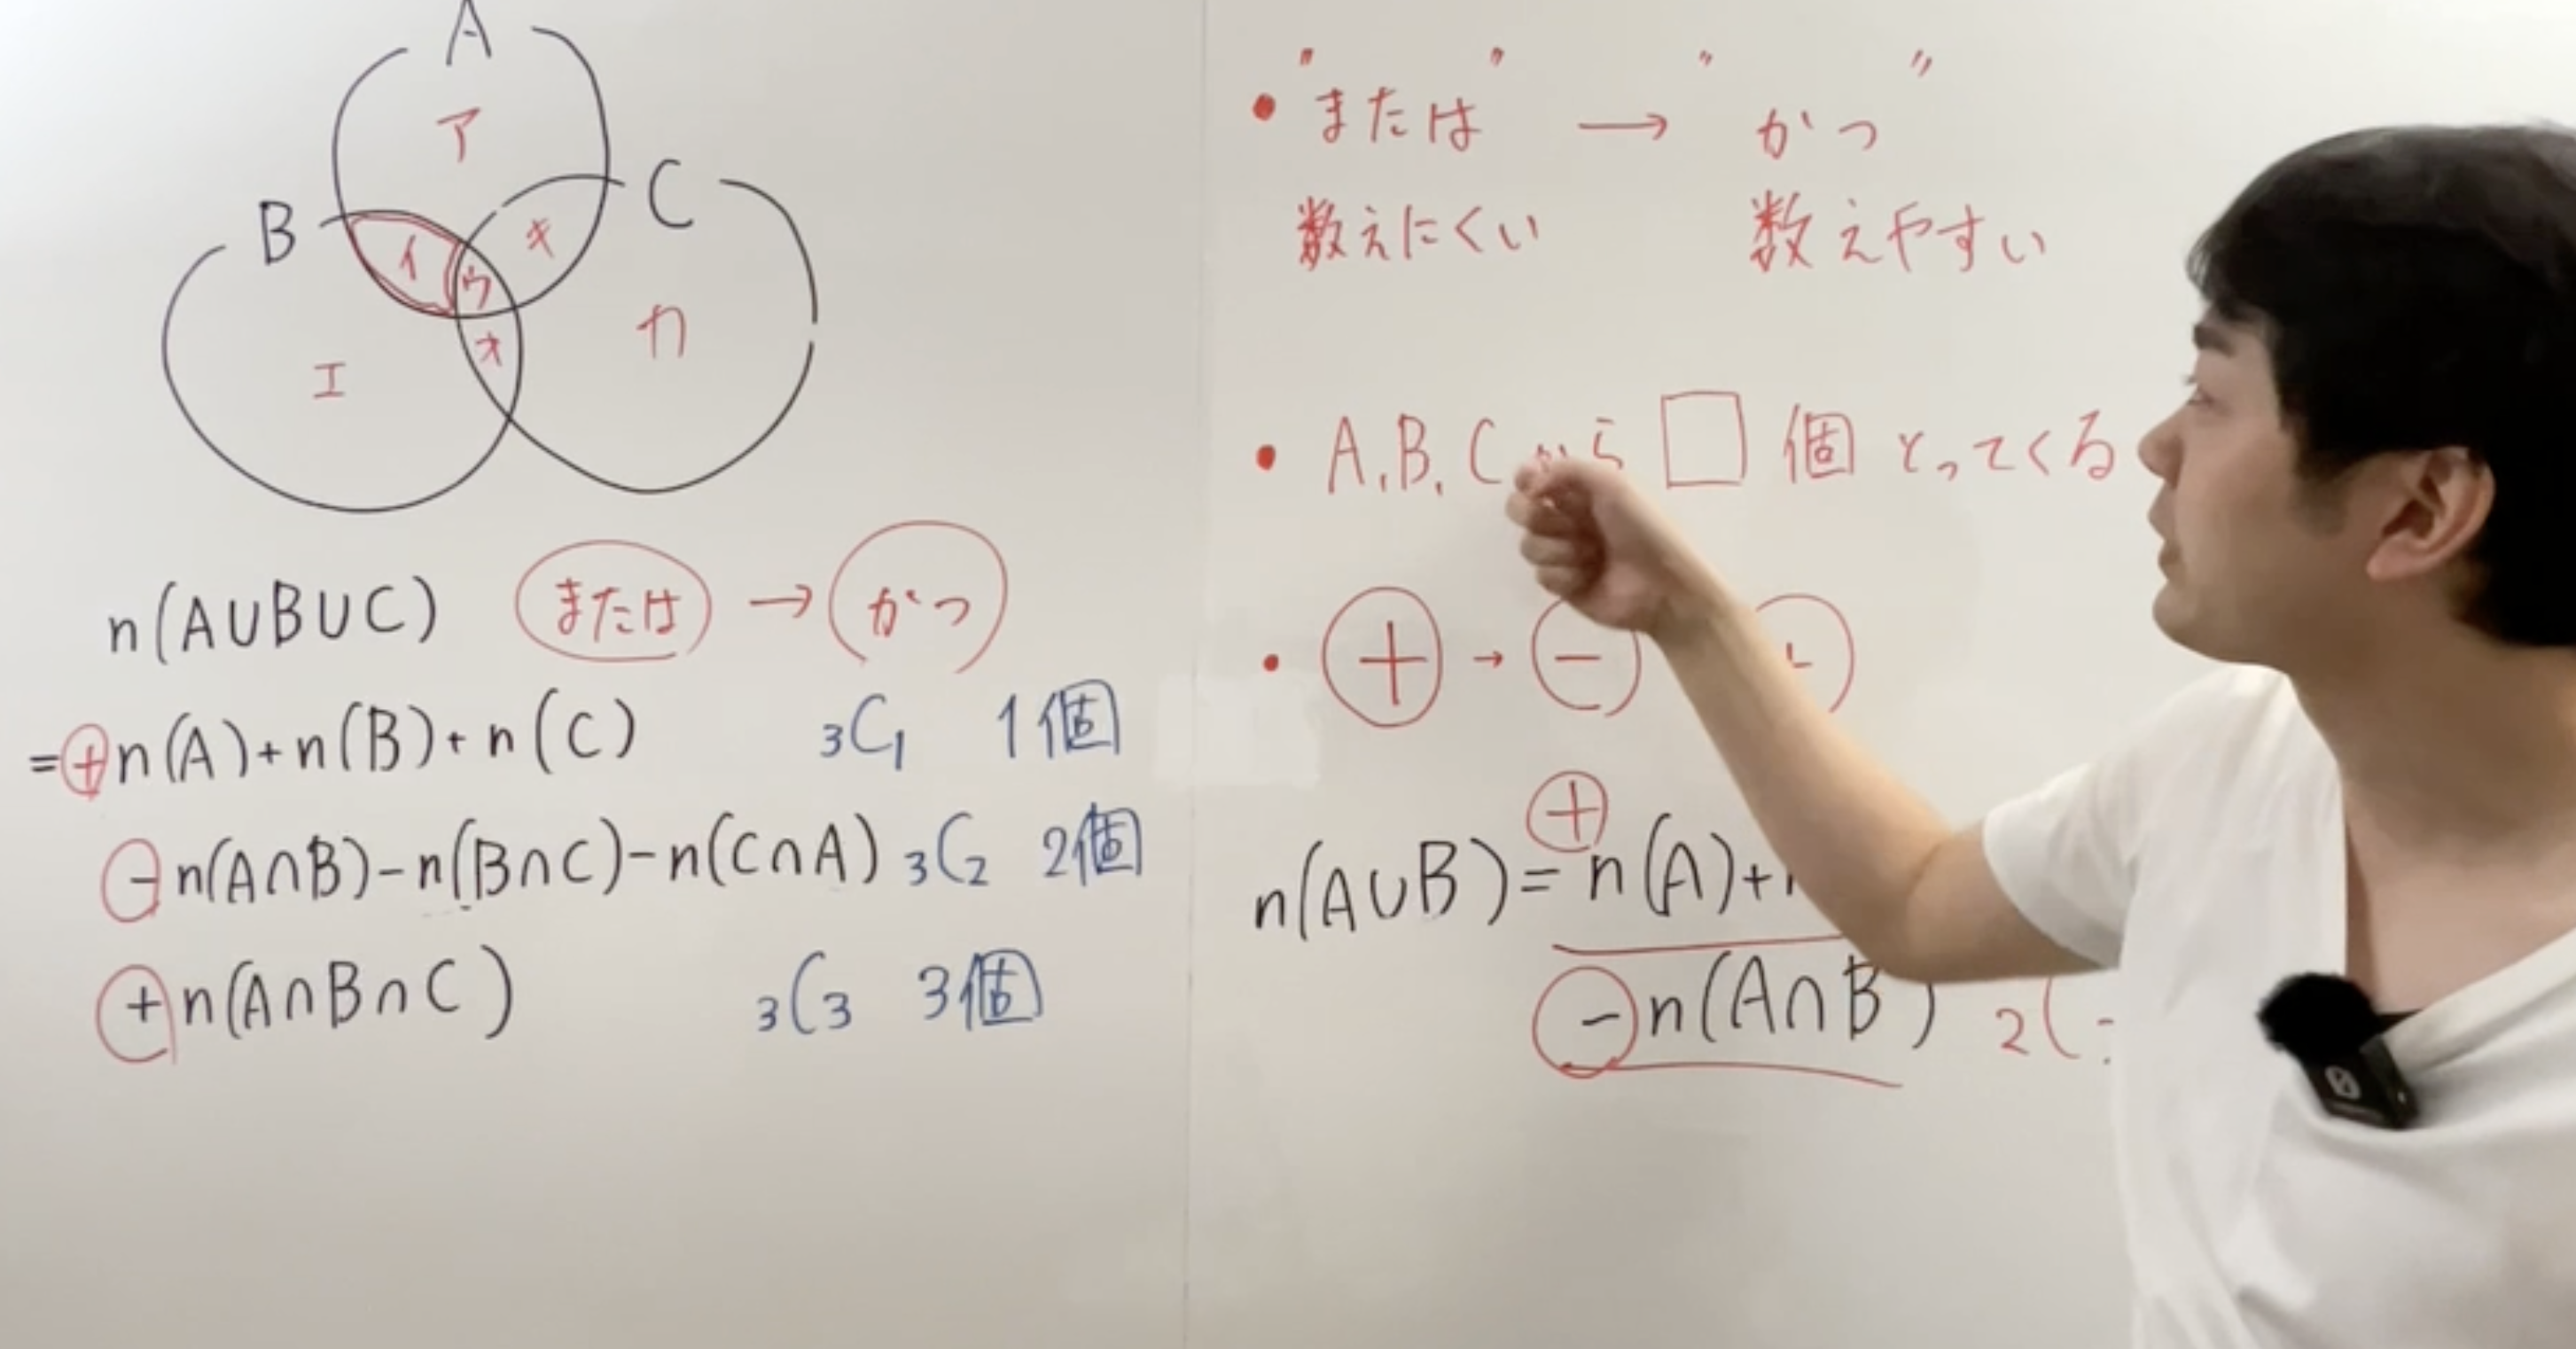 A
ア
B
C
イ
キ
ウ
エ
オ
カ
n(A∪B∪C) または → かつ
=+n(A)+n(B)+n(C) ₃C₁ 1個
-n(A∩B)-n(B∩C)-n(C∩A) ₃C₂ 2個
+n(A∩B∩C) ₃C₃ 3個
• "または" → "かつ"
数えにくい 数えやすい
• A,B,Cから□個とってくる
• + → -
+
n(A∪B)=n(A)+
-n(A∩B) ₂C